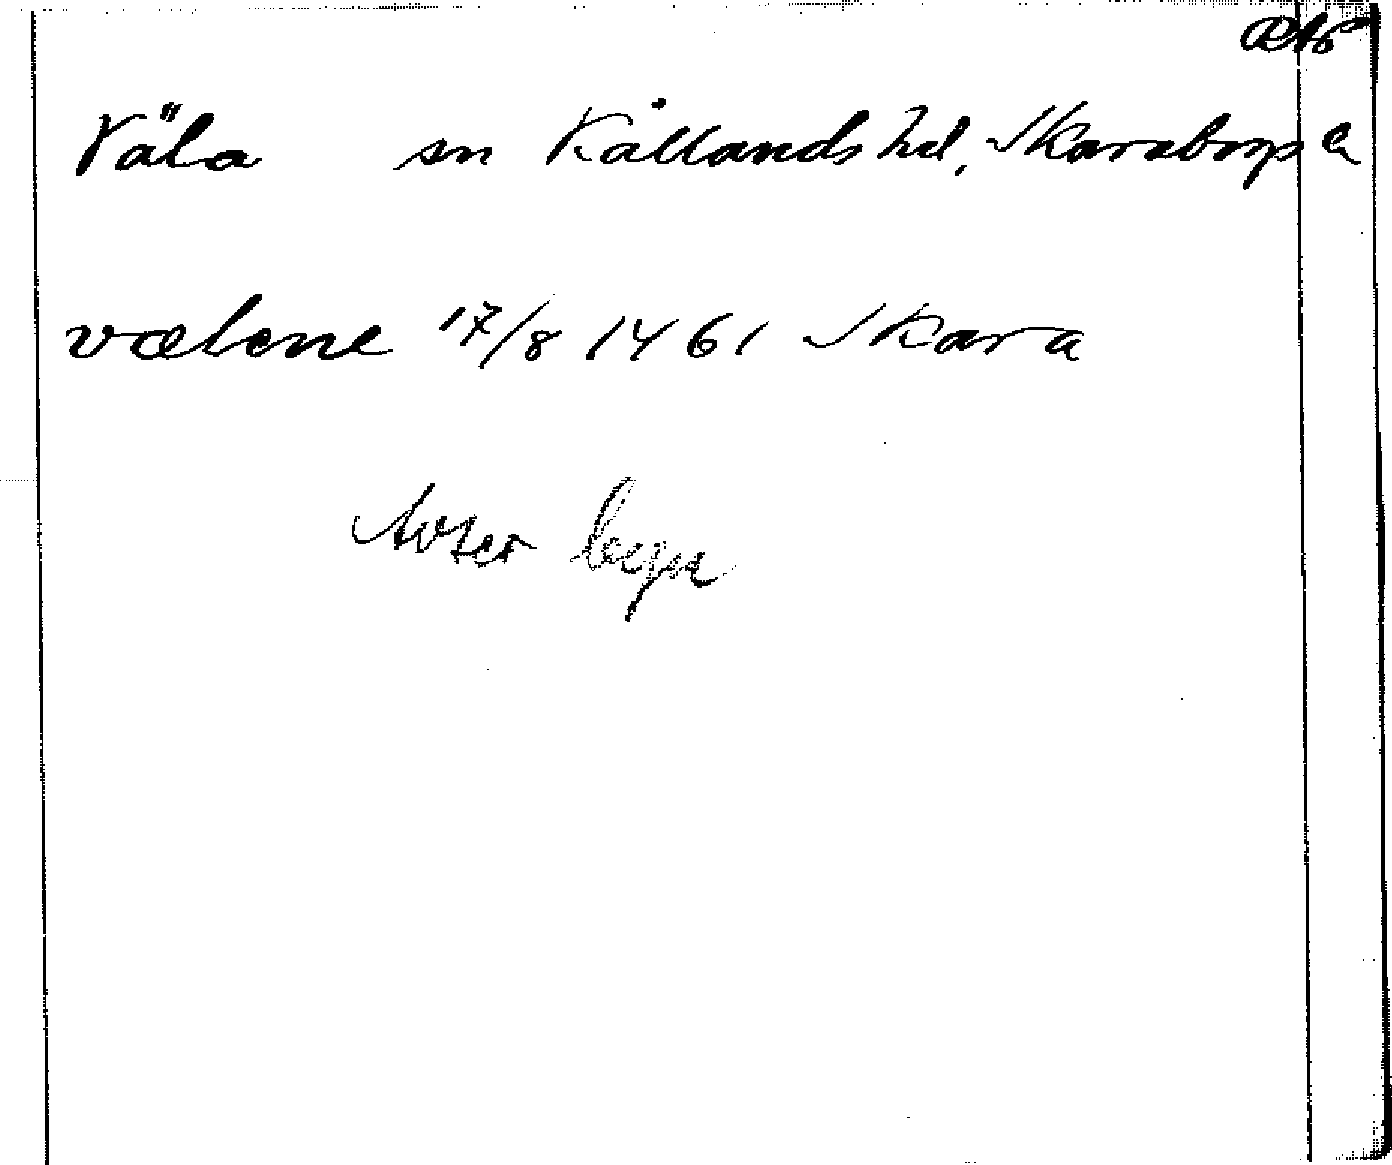 Väla sn Kållands hd, Skaraborgs l
vælene 17/8 1461 Skara
Avser byn